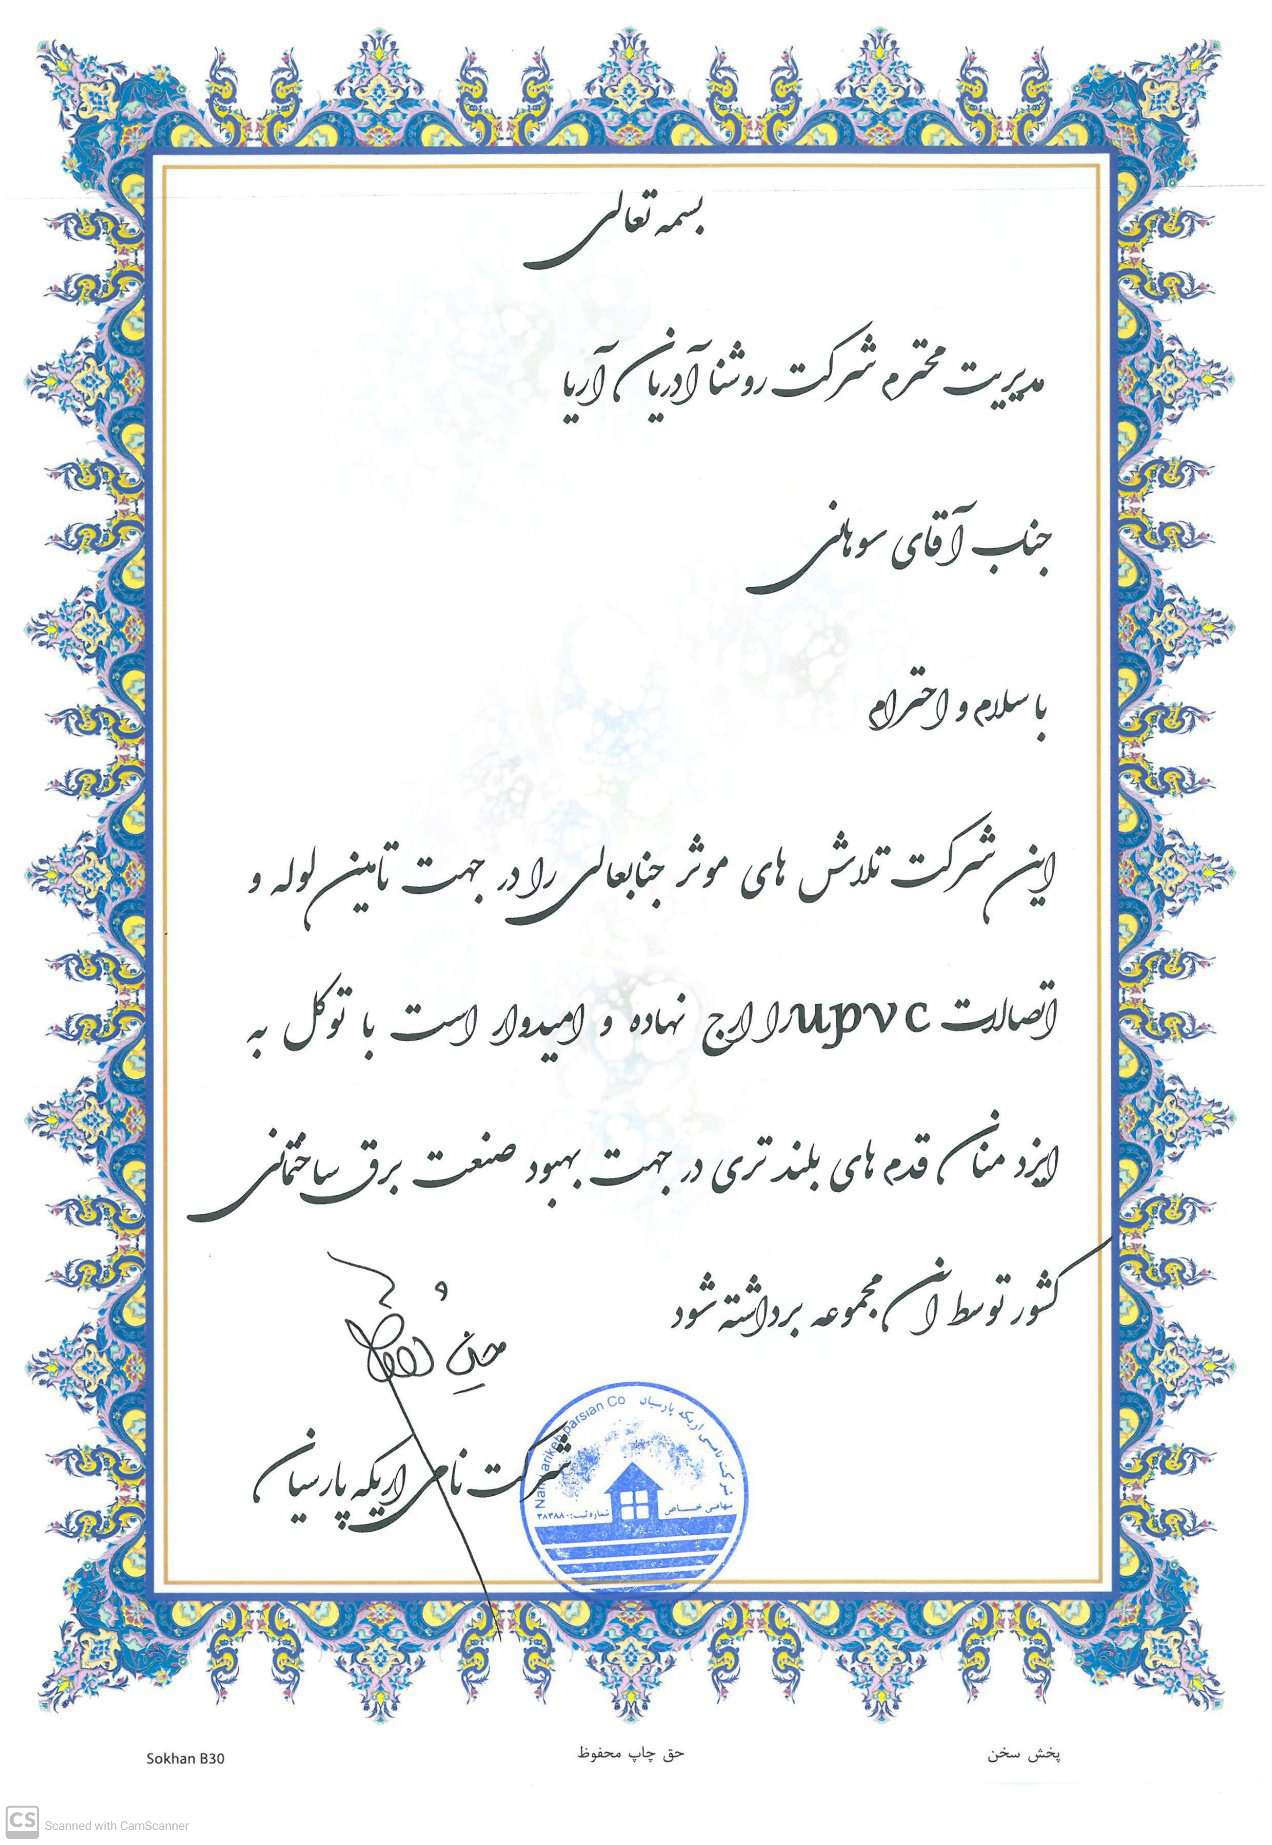 بسمه تعالی
مدیریت محترم شرکت روشنا آدریان آریا
جناب آقای سوهانی
با سلام و احترام
این شرکت تلاش های موثر جنابعالی را در جهت تامین لوله و
اتصالات upvcرا ارج نهاده و امیدوار است با توکل به
ایزد منان قدم های بلند تری در جهت بهبود صنعت برق ساختمانی
کشور توسط ان مجموعه برداشته شود
شرکت نامی اریکه پارسیان
شرکت نامی اریکه پارسیان Nami arikeh parsian Co
سهامی خاص
شماره ثبت: ۳۸۳۸۸۰
پخش سخن
حق چاپ محفوظ
Sokhan B30
CS Scanned with CamScanner